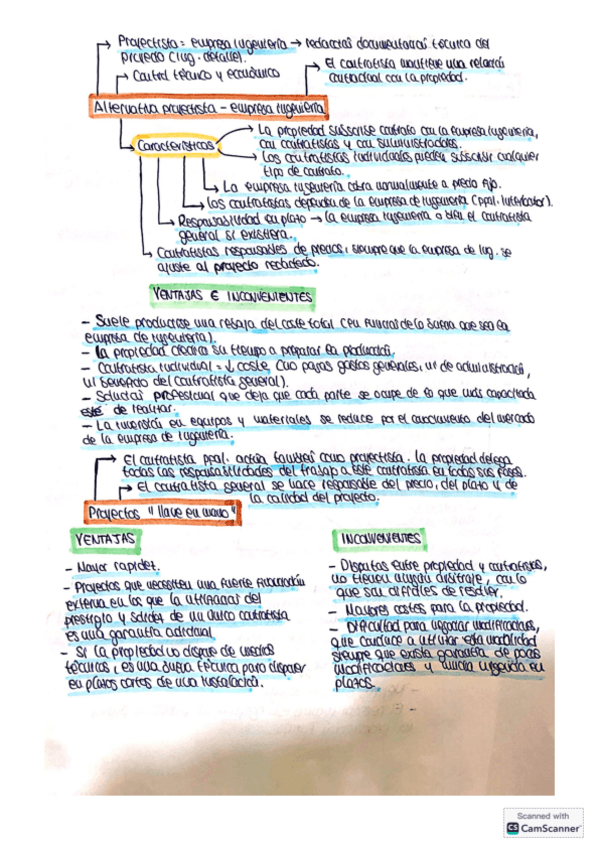 Proyectista = empresa ingeniería → redactar documentación técnica del
proyecto (ing. detalle).
Control técnico y económico
El contratista mantiene una relación
contractual con la propiedad.
Alternativa proyectista - empresa ingeniería
Características
La propiedad subscribe contrato con la empresa ingeniería,
con contratistas y con suministradores.
Los contratistas individuales pueden subscribir cualquier
tipo de contrato.
La empresa ingeniería cobra normalmente a precio fijo.
Los contratistas dependen de la empresa de ingeniería (ppal. interlocutor).
Responsabilidad en plazo → la empresa ingeniería o bien el contratista
general si existiera.
Contratistas responsables de precios, siempre que la empresa de ing. se
ajuste al proyecto redactado.
VENTAJAS E INCONVENIENTES
- Suele producirse una rebaja del coste total (en función de lo buena que sea la
empresa de ingeniería).
- La propiedad dedica su tiempo a preparar la producción.
- Contratista individual = ↓ coste (no pagas gastos generales, ni de administración,
ni beneficio del contratista general).
- Solución profesional que deja que cada parte se ocupe de lo que más capacitada
esté de realizar.
- La inversión en equipos y materiales se reduce por el conocimiento del mercado
de la empresa de ingeniería.
El contratista ppal. actúa también como proyectista. La propiedad delega
todas las responsabilidades del trabajo a este contratista en todas sus fases.
El contratista general se hace responsable del precio, del plazo y de
la calidad del proyecto.
Proyectos "llave en mano"
VENTAJAS
- Mayor rapidez.
- Proyectos que necesiten una fuerte financiación
externa en los que la
prestigio y solidez de un único contratista
es una garantía adicional
- Si la propiedad no dispone de medios
técnicos, es una buena técnica para disponer
en plazos cortos de una instalación.
INCONVENIENTES
- Disputas entre propiedad y contratistas,
no tienen ningún arbitraje, con lo
que son difíciles de resolver.
- Mayores costes para la propiedad.
- Dificultad para negociar modificaciones,
que conduce a utilizar esta modalidad
siempre que exista garantía de pocas
modificaciones y mucha urgencia en
plazos.
Scanned with
CS CamScanner